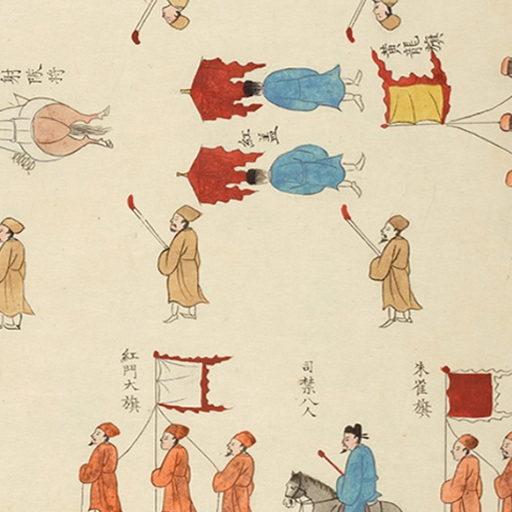 射隊將
黃龍旗
紅蓋
紅門大旗
司禁八人
朱雀旗